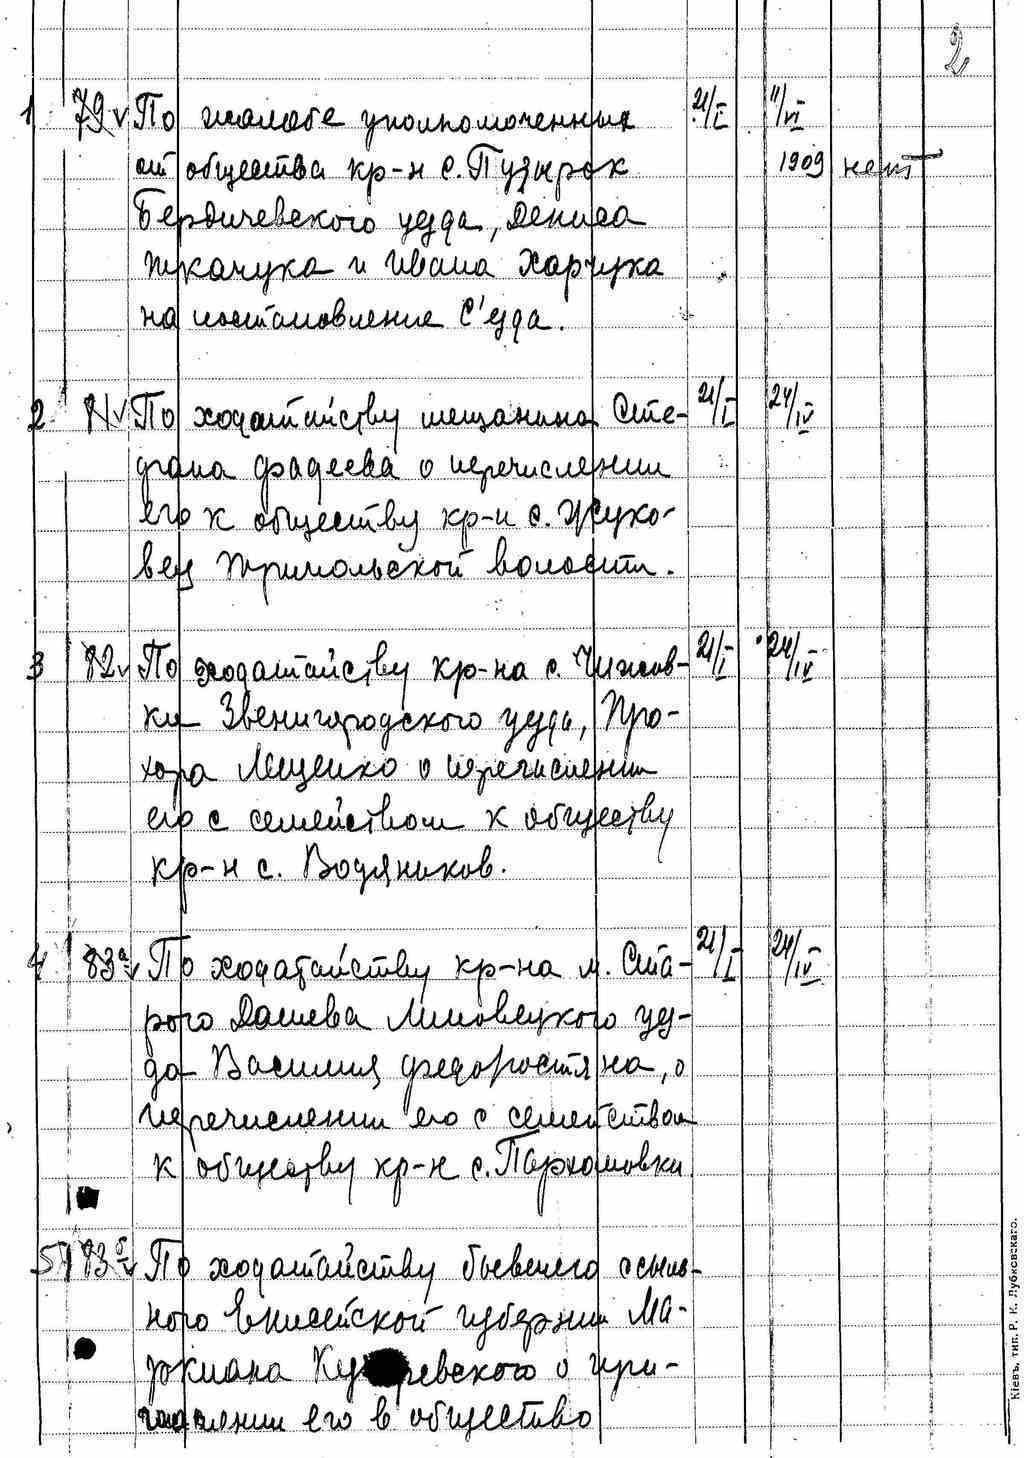 2
1 79 v По жалобе уполномоченных 21/I 11/VI
от общества кр-н с. Пузырок 1909 нет
Бердичевского уезда, Дениса
Ткачука и Ивана Харчука
на постановление С'езда.
2 v По ходатайству мещанина Сте- 21/I 24/IV
фана Фадеева о перечислении
его к обществу кр-н с. Жухо-
вец Трипольской волости.
3 82 v По ходатайству кр-на с. Чижов- 21/I 24/IV
ки Звенигородского уезда, Про-
хора Лещенко о перечислении
его с семейством к обществу
кр-н с. Водяников.
4 83а v По ходатайству кр-на м. Ста- 21/I 24/IV
рого Дашева Липовецкого уез-
да Василия, о
перечислении его с семейством
к обществу кр-н с. Пархомовки
5 83б v По ходатайству бывшего ссыль-
ного Енисейской губернии Ма-
ркиана о при-
его в общество
Кіевъ, тип. Р. К. Лубковскаго.